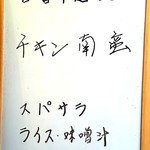 チキン南蛮
スパサラ
ライス・味噌汁